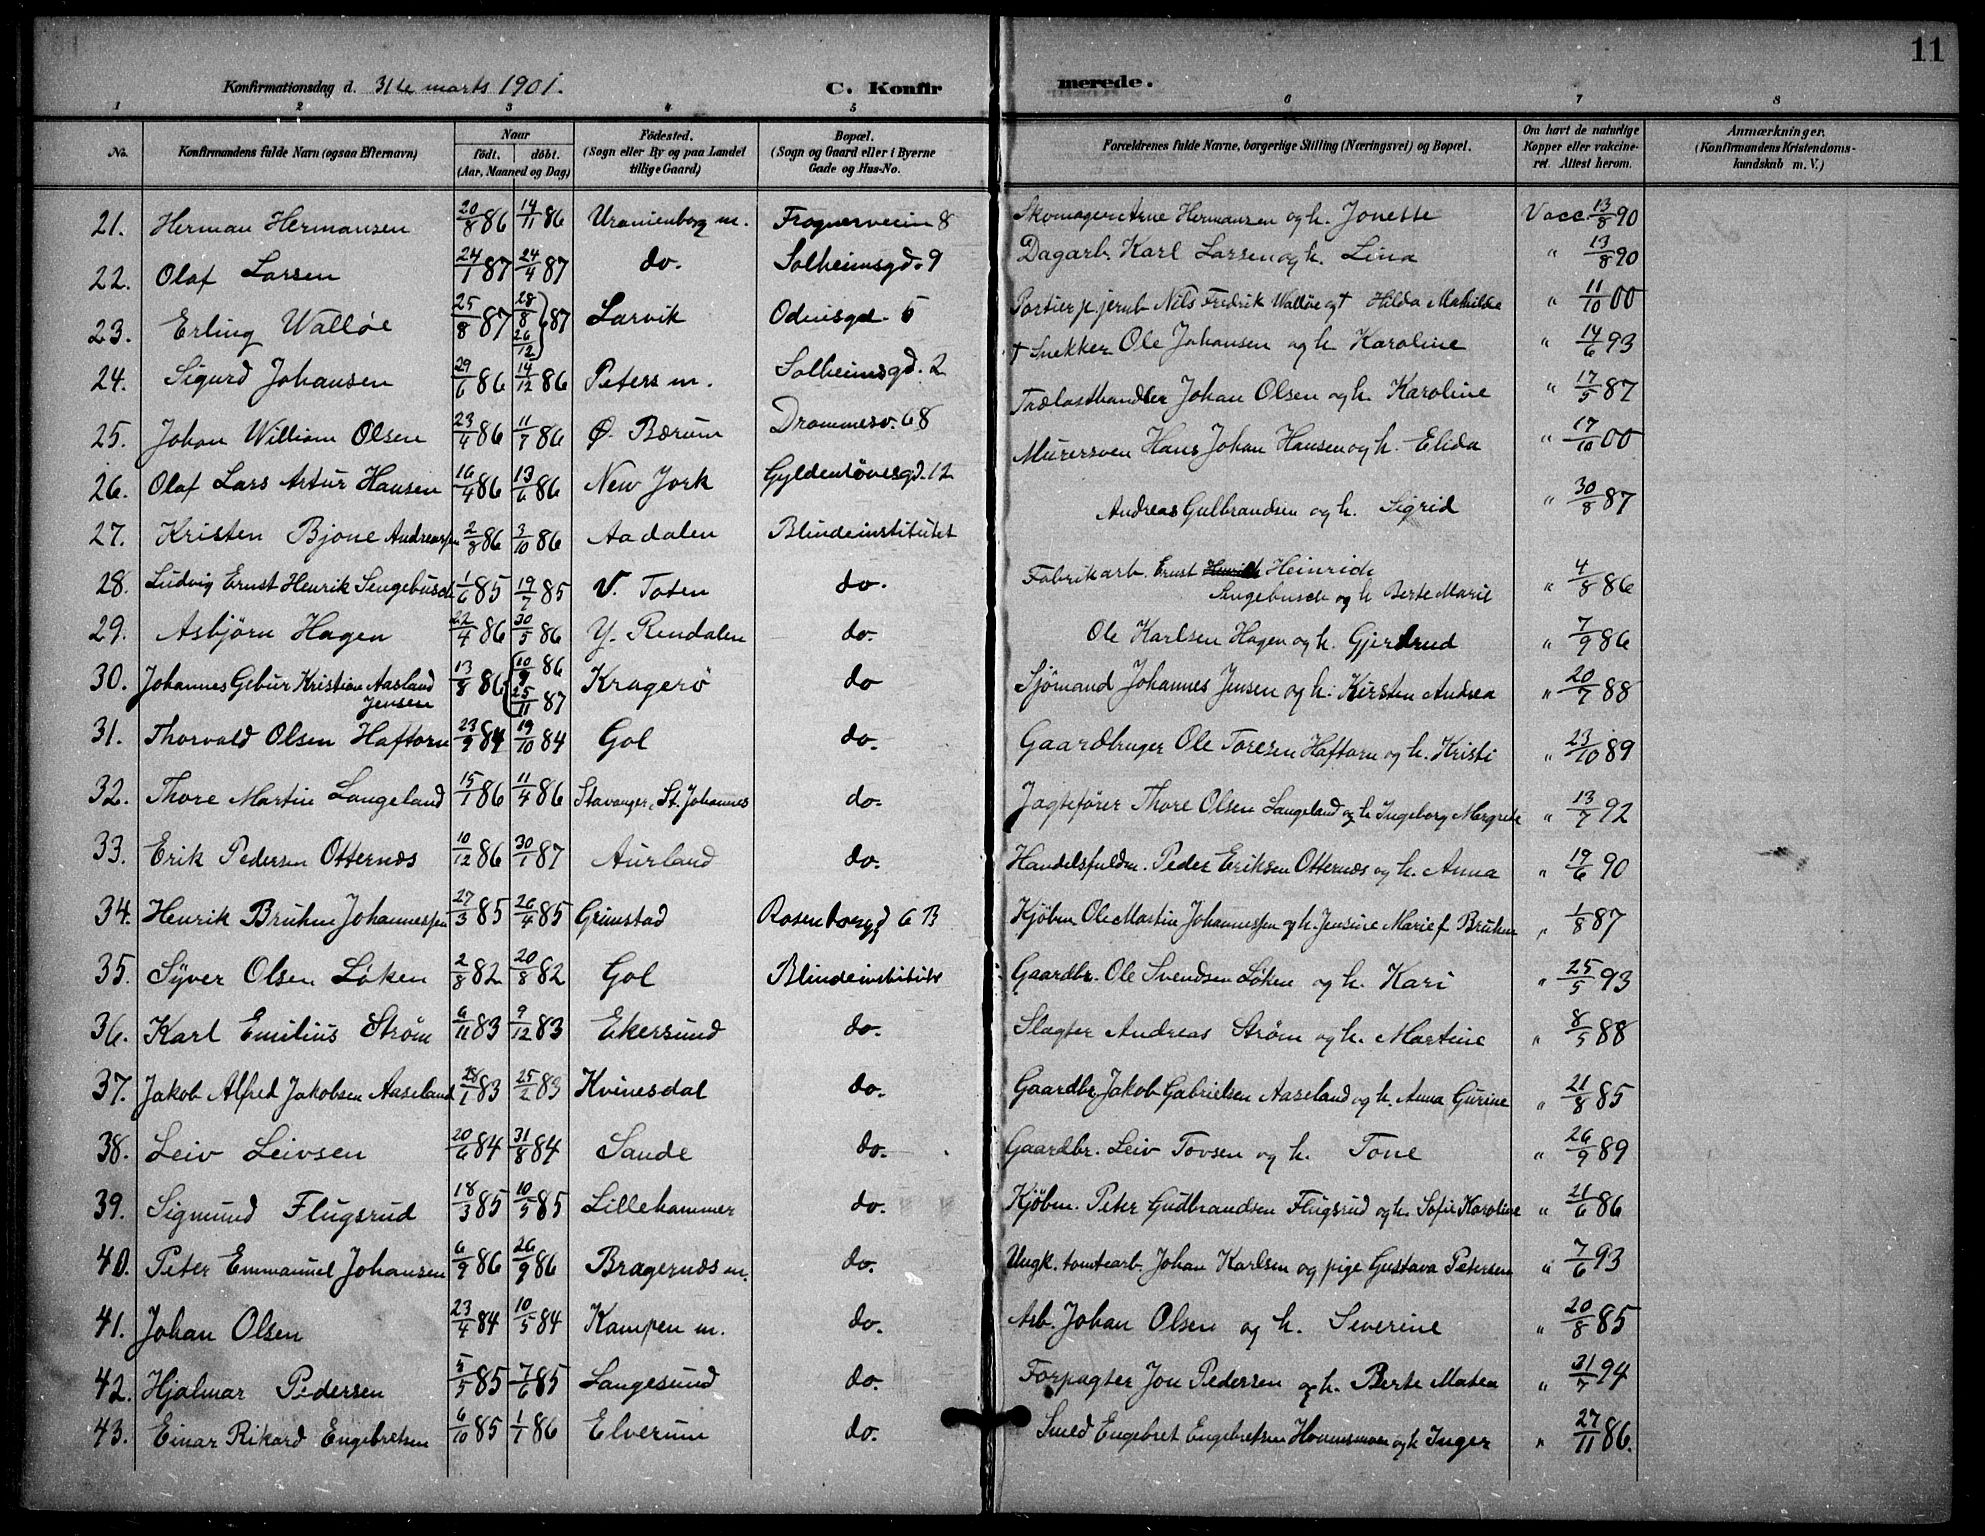 11
Konfirmationsdag d. 31te marts 1901. C. Konfirmerede.
1 2 3 4 5 6 7 8
No. Konfirmandens fulde Navn (ogsaa Efternavn) Naar født. døbt. (Aar, Maaned og Dag) Fødested. (Sogn eller By og paa Landet tillige Gaard) Bopæl. (Sogn og Gaard eller i Byerne Gade og Hus-No. Forældrenes fulde Navne, borgerlige Stilling (Næringsvei) og Bopæl. Om havt de naturlige Kopper eller vakcineret. Attest herom. Anmærkninger. (Konfirmandens Kristendomskundskab m. V.)
21. Herman Hermansen 20/8 86 14/11 86 Uranienborg m. Frognerveien 8 Skomager Arne Hermansen og h. Jonette Vacc 13/8 90
22. Olaf Larsen 24/1 87 24/4 87 do. Solheimsgd. 9 Dagarb. Karl Larsen og h. Lina " 13/8 90
23. Erling Walløe 25/8 87 28/8 26/12 } 87 Larvik Odinsgd. 5 Portier p. jernb Nils Fredrik Walløe og † Hilda Mathilde " 11/10 00
24. Sigurd Johansen 29/6 86 14/12 86 Peters m. Solheimsgd. 2 † Snekker Ole Johansen og h Karoline " 14/6 93
25. Johan William Olsen 23/4 86 11/7 86 Ø. Bærum Drammesv. 68 Trælasthandler Johan Olsen og h. Karoline " 17/5 87
26. Olaf Lars Artur Hansen 16/4 86 13/6 86 New Jork Gyldenløvesgd. 12 Murersven Hans Johan Hansen og h. Elida " 17/10 00
27. Kristen Bjone Andreassen 2/8 86 3/10 86 Aadalen Blindeinstitutet Andreas Gulbrandsen og h. Sigrid " 30/8 87
28. Ludvig Ernst Henrik Sengebusch 1/6 85 19/7 85 V. Toten do. Fabrikarb. Ernst Heinrich Sengebusch og h Berte Marie " 4/8 86
29. Asbjørn Hagen 22/4 86 30/5 86 Y. Rendalen do. Ole Karlsen Hagen og h. Gjertrud " 7/9 86
30. Johannes Gebur Kristian Aasland Jensen 13/8 86 { 10/9 86 25/11 87 Kragerö do Sjømand Johannes Jensen og h. Kirsten Andrea " 20/7 88
31. Thorvald Olsen Haftorn 23/9 84 19/10 84 Gol do. Gaardbruger Ole Toresen Haftorn og h. Kristi " 23/10 89
32. Thore Martin Langeland 15/1 86 11/4 86 Stavanger, St. Johannes do. Jagtefører Thore Olsen Langeland og h Ingeborg Margrete " 13/7 92
33. Erik Pedersen Otternæs 10/12 86 30/1 87 Aurland do. Handelsfuldm. Peder Eriksen Otternæs og h. Anna " 19/6 90
34. Henrik Bruhn Johannessen 27/3 85 26/4 85 Grimstad Rosenborggd 6 B Kjöbm Ole Martin Johannessen og h. Jensine Marie f Bruhn " 1/8 87
35. Syver Olsen Löken 2/8 82 20/8 82 Gol Blindeinstitutet Gaardbr. Ole Svendsen Löken og h. Kari " 25/5 93
36. Karl Emilius Strøm 6/11 83 9/12 83 Ekersund do. Slagter Andreas Strøm og h. Martine " 8/5 88
37. Jakob Alfred Jakobsen Aaseland 28/1 83 25/2 83 Kvinesdal do. Gaardbr Jakob Gabrielsen Aaseland og h. Anna Gurine " 21/8 85
38. Leiv Leivsen 20/6 84 31/8 84 Sande do. Gaardbr. Leiv Tovsen og h. Tone " 26/9 89
39. Sigmund Flugsrud 18/3 85 10/5 85 Lillehammer do. Kjöbm. Peter Gudbrandsen Flugsrud og h. Sofie Karoline " 21/6 86
40. Peter Emmanuel Johansen 6/9 86 26/9 86 Bragernæs m. do. Ungk. tomtearb. Johan Karlsen og pige Gustava Petersen " 7/6 93
41. Johan Olsen 23/4 84 10/5 84 Kampen m. do. Arb. Johan Olsen og h. Severine " 20/8 85
42. Hjalmar Pedersen 5/5 85 7/6 85 Langesund do. Forpagter Jon Pedersen og h. Berte Matea " 31/7 94
43. Einar Rikard Engebretsen 6/10 85 1/1 86 Elverum do. Smed Engebret Engebretsen og h Inger " 27/11 86.